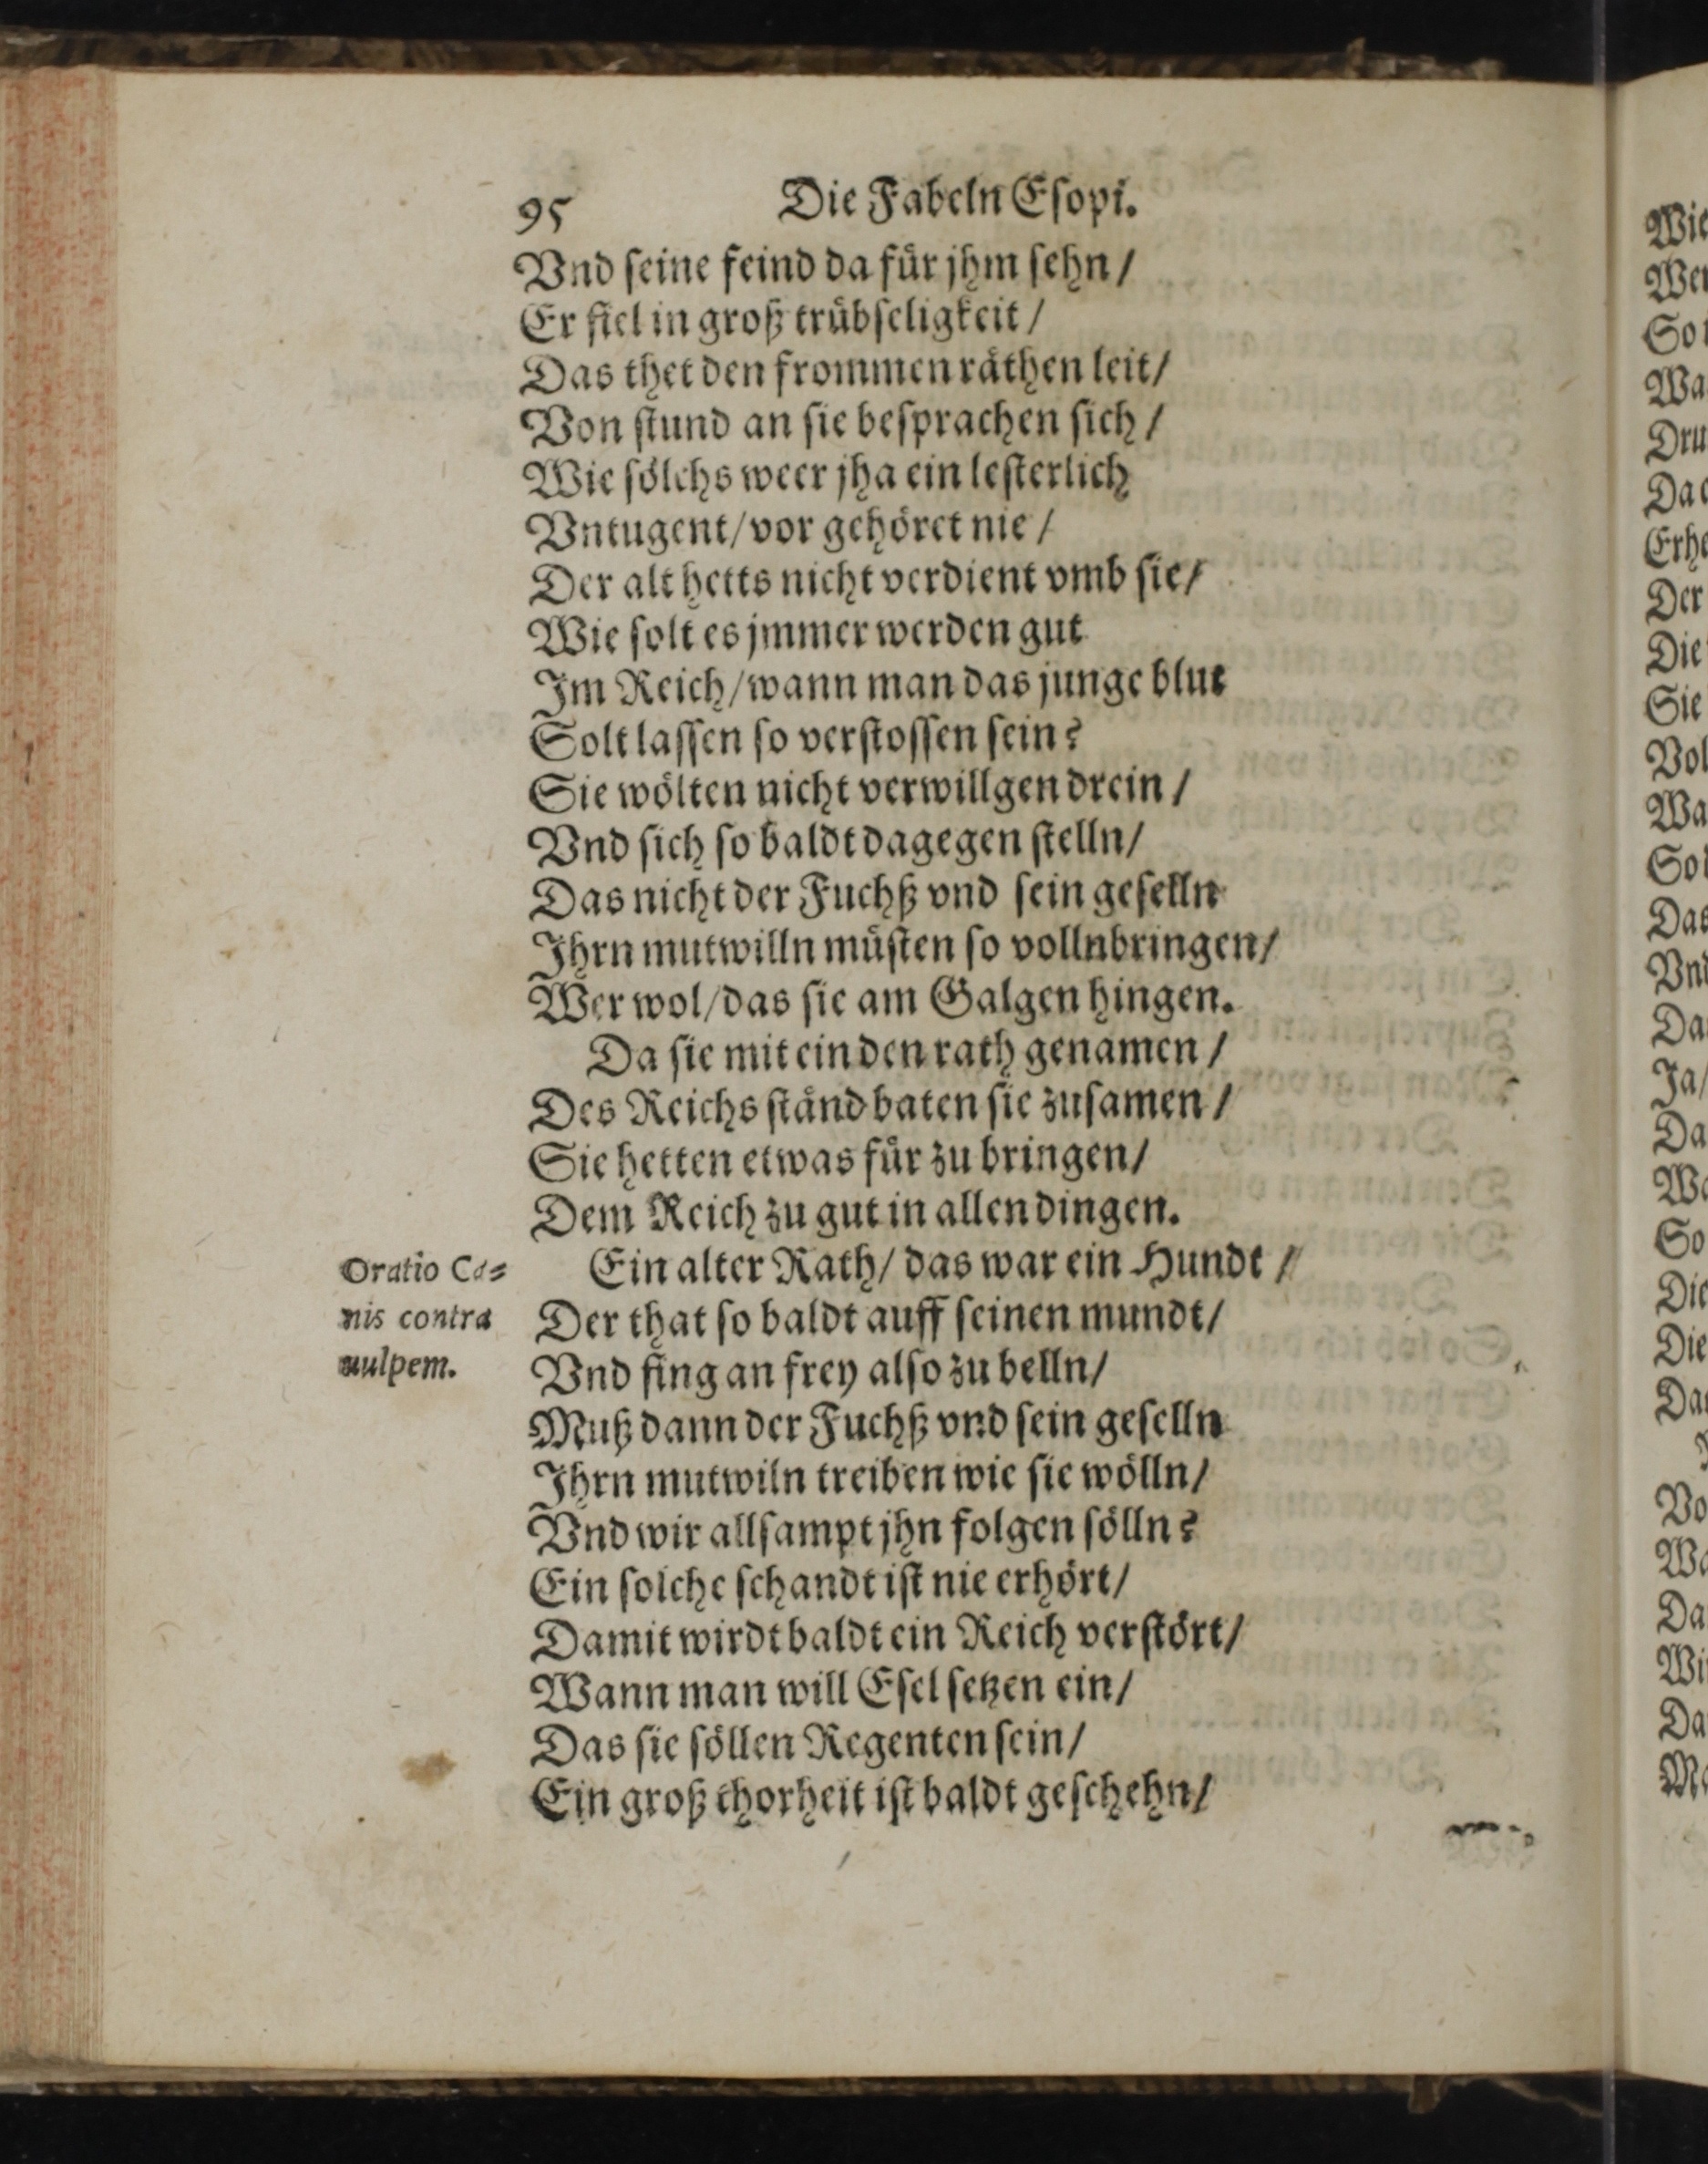 95 Die Fabeln Eſopi.
Vnd ſeine feind da fuͤr jhm ſehn/
Er fiel in groß truͤbſeligkeit/
Das thet den frommen raͤthen leit/
Von ſtund an ſie beſprachen ſich/
Wie ſoͤlchs weer jha ein leſterlich
Vntugent/vor gehoͤret nie/
Der alt hetts nicht verdient vmb ſie/
Wie ſolt es jmmer werden gut
Im Reich/wann man das junge blut
Solt laſſen ſo verſtoſſen ſein?
Sie woͤlten nicht verwillgen drein/
Vnd ſich ſo baldt dagegen ſtelln/
Das nicht der Fuchß vnd ſein geſelln
Ihrn mutwilln muͤſten ſo vollnbringen/
Wer wol/das ſie am Galgen hingen.
Da ſie mit ein den rath genamen/
Des Reichs ſtaͤnd baten ſie zuſamen/
Sie hetten etwas fuͤr zu bringen/
Dem Reich zu gut in allen dingen.
Oratio Ca⸗
nis contra
uulpem.
Ein alter Rath/ das war ein Hundt/
Der that ſo baldt auff ſeinen mundt/
Vnd fing an frey alſo zu belln/
Muß dann der Fuchß vnd ſein geſelln
Ihrn mutwiln treiben wie ſie woͤlln/
Vnd wir allſampt jhn folgen ſoͤlln?
Ein ſolche ſchandt iſt nie erhoͤrt/
Damit wirdt baldt ein Reich verſtoͤrt/
Wann man will Eſel ſetzen ein/
Das ſie ſoͤllen Regenten ſein/
Ein groß thorheit iſt baldt geſchehn/
Wie
So
Dru
Der
Die
Sie
Das
Ja/
So
Die
Die